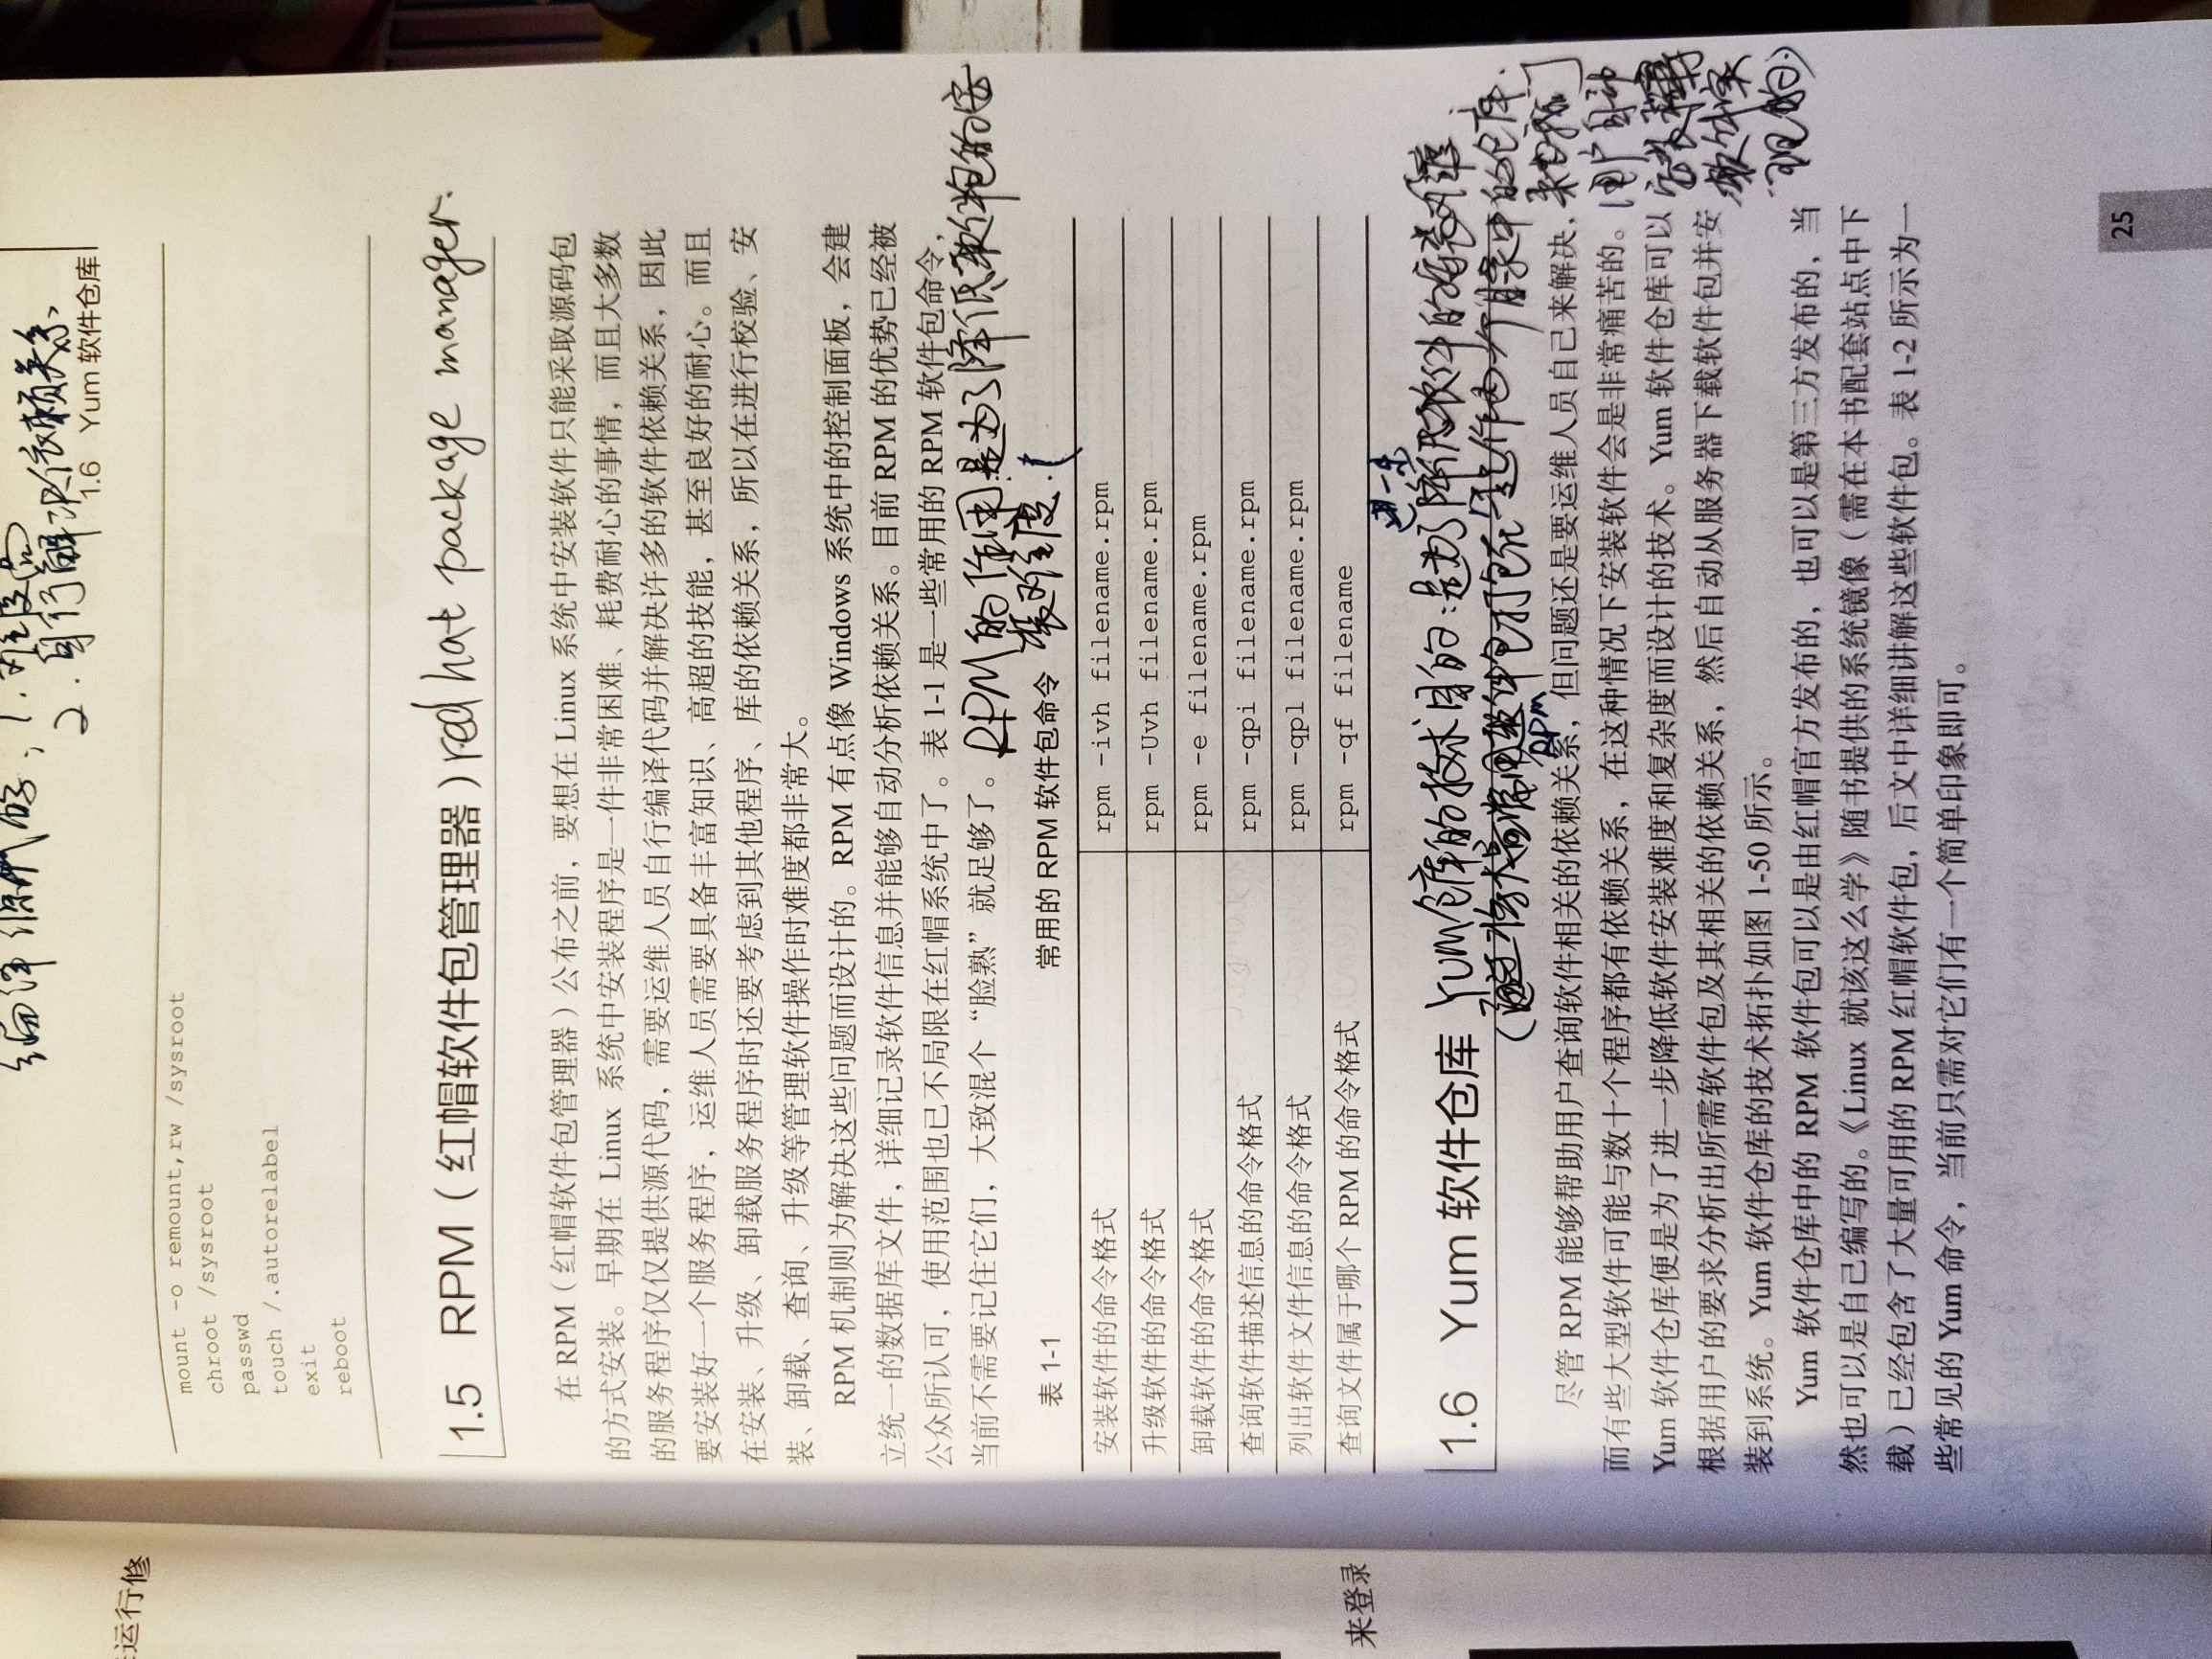 编译源代码
1.难度高
2.自行解决依赖关系
1.6 Yum 软件仓库
mount -o remount,rw /sysroot
chroot /sysroot
passwd
touch /.autorelabel
exit
reboot
1.5 RPM（红帽软件包管理器） red hat package manager.
在 RPM（红帽软件包管理器）公布之前，要想在 Linux 系统中安装软件只能采取源码包
的方式安装。早期在 Linux 系统中安装程序是一件非常困难、耗费耐心的事情，而且大多数
的服务程序仅仅提供源代码，需要运维人员自行编译代码并解决许多的软件依赖关系，因此
要安装好一个服务程序，运维人员需要具备丰富知识、高超的技能，甚至良好的耐心。而且
在安装、升级、卸载服务程序时还要考虑到其他程序、库的依赖关系，所以在进行校验、安
装、卸载、查询、升级等管理软件操作时难度都非常大。
RPM 机制则为解决这些问题而设计的。RPM 有点像 Windows 系统中的控制面板，会建
立统一的数据库文件，详细记录软件信息并能够自动分析依赖关系。目前 RPM 的优势已经被
公众所认可，使用范围也已不局限在红帽系统中了。表 1-1 是一些常用的 RPM 软件包命令，
当前不需要记住它们，大致混个“脸熟”就足够了。
RPM的作用是为了降低软件包的安
装难度.
表 1-1 常用的 RPM 软件包命令
安装软件的命令格式 rpm -ivh filename.rpm
升级软件的命令格式 rpm -Uvh filename.rpm
卸载软件的命令格式 rpm -e filename.rpm
查询软件描述信息的命令格式 rpm -qpi filename.rpm
列出软件文件信息的命令格式 rpm -qpl filename.rpm
查询文件属于哪个 RPM 的命令格式 rpm -qf filename
进一步
1.6 Yum 软件仓库 Yum仓库的技术目的:是为了降低软件的安装难
RPM
尽管 RPM 能够帮助用户查询软件相关的依赖关系，但问题还是要运维人员自己来解决，
而有些大型软件可能与数十个程序都有依赖关系，在这种情况下安装软件会是非常痛苦的。
Yum 软件仓库便是为了进一步降低软件安装难度和复杂度而设计的技术。Yum 软件仓库可以
根据用户的要求分析出所需软件包及其相关的依赖关系，然后自动从服务器下载软件包并安
装到系统。Yum 软件仓库的技术拓扑如图 1-50 所示。
Yum 软件仓库中的 RPM 软件包可以是由红帽官方发布的，也可以是第三方发布的，当
然也可以是自己编写的。《Linux 就该这么学》随书提供的系统镜像（需在本书配套站点中下
载）已经包含了大量可用的 RPM 红帽软件包，后文中详细讲解这些软件包。表 1-2 所示为一
些常见的 Yum 命令，当前只需对它们有一个简单印象即可。
25
运行修
来登录